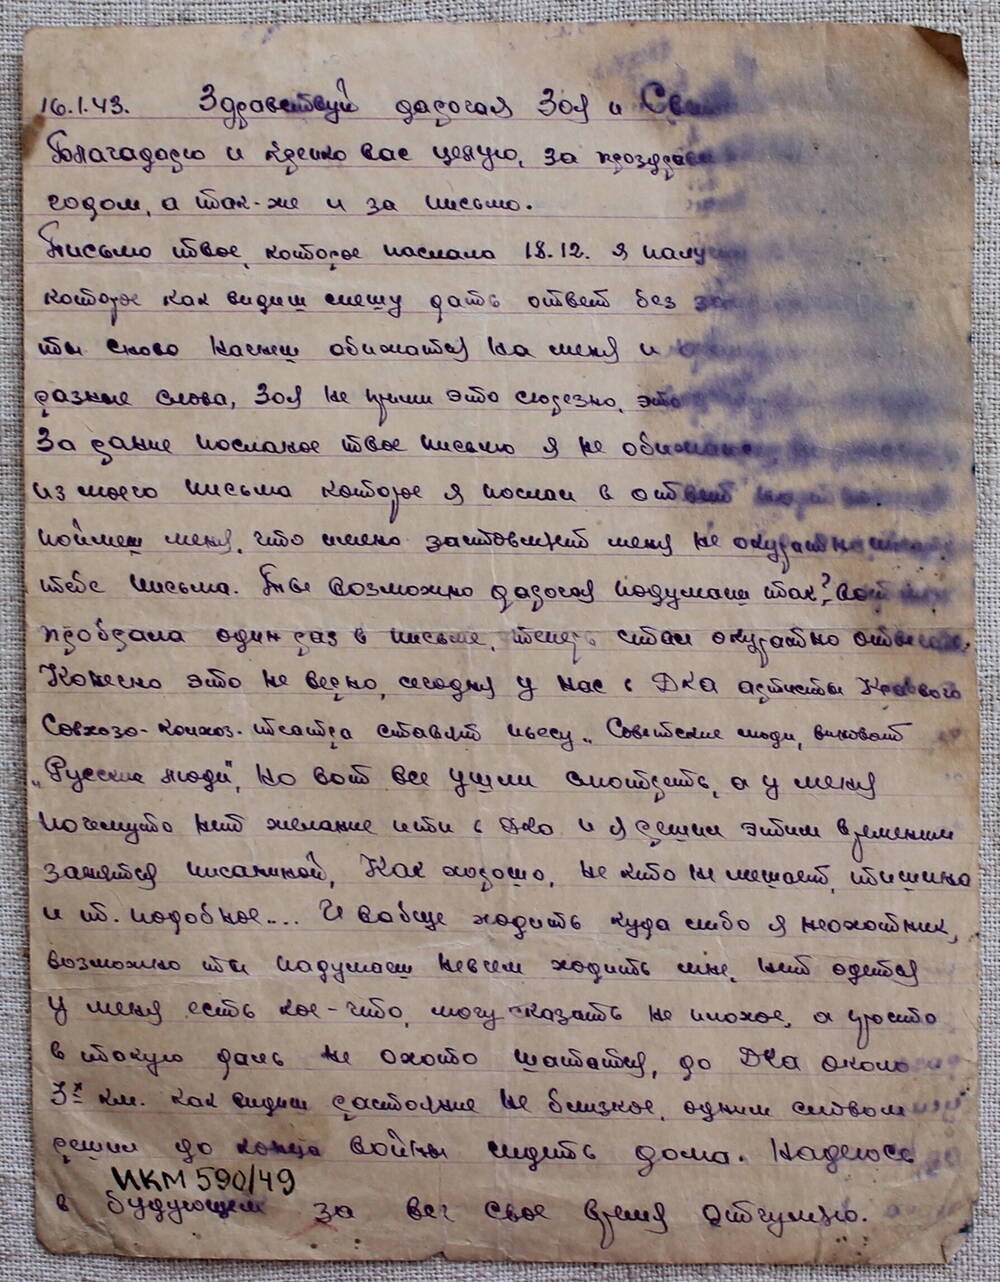 16.1.43. Здравствуй дарогая Зоя и
Благадарю и крепко вас целую, за
годом, а так-же и за письмо.
Письмо твое, которое паслала 18.12. я
которое как видиш спешу дать ответ без
ты снова начнеш обижатся на меня и
разные слова, Зоя не прими это сюрезно, это
За рание посланое твое письмо я не
из моего письма которое я послал в ответ
поймеш меня, что имено заставляет меня не
тебе письма. Ты возможно дарогая подумаеш так?
пробрала один раз в письме, теперь стал окуратно
Конесно это не верно, сегодня у нас в ДКА артисты Краевого
Совхозо-колхоз. театра ставят пьесу „ Советские люди, виноват
„Русские люди", но вот все ушли смотреть, а у меня
почемуто нет желание ити в ДКа и я решил этим временим
занятся писаниной, Как хорошо, не кто не мешает, тишина
и т. подобное.... И вобще ходить куда либо я неохотник,
возможно ты падумаеш невчем ходить мне, нет одется
у меня есть кое-что, могу сказать не плохое, а просто
в такую даль не охото шататся, до ДКа около
3х км. как видиш растояние не близкое, одним словом
решил до конца войны сидеть дома. Надеюсь
ИКМ 590/49
в будующем за все свое время отгуляю.